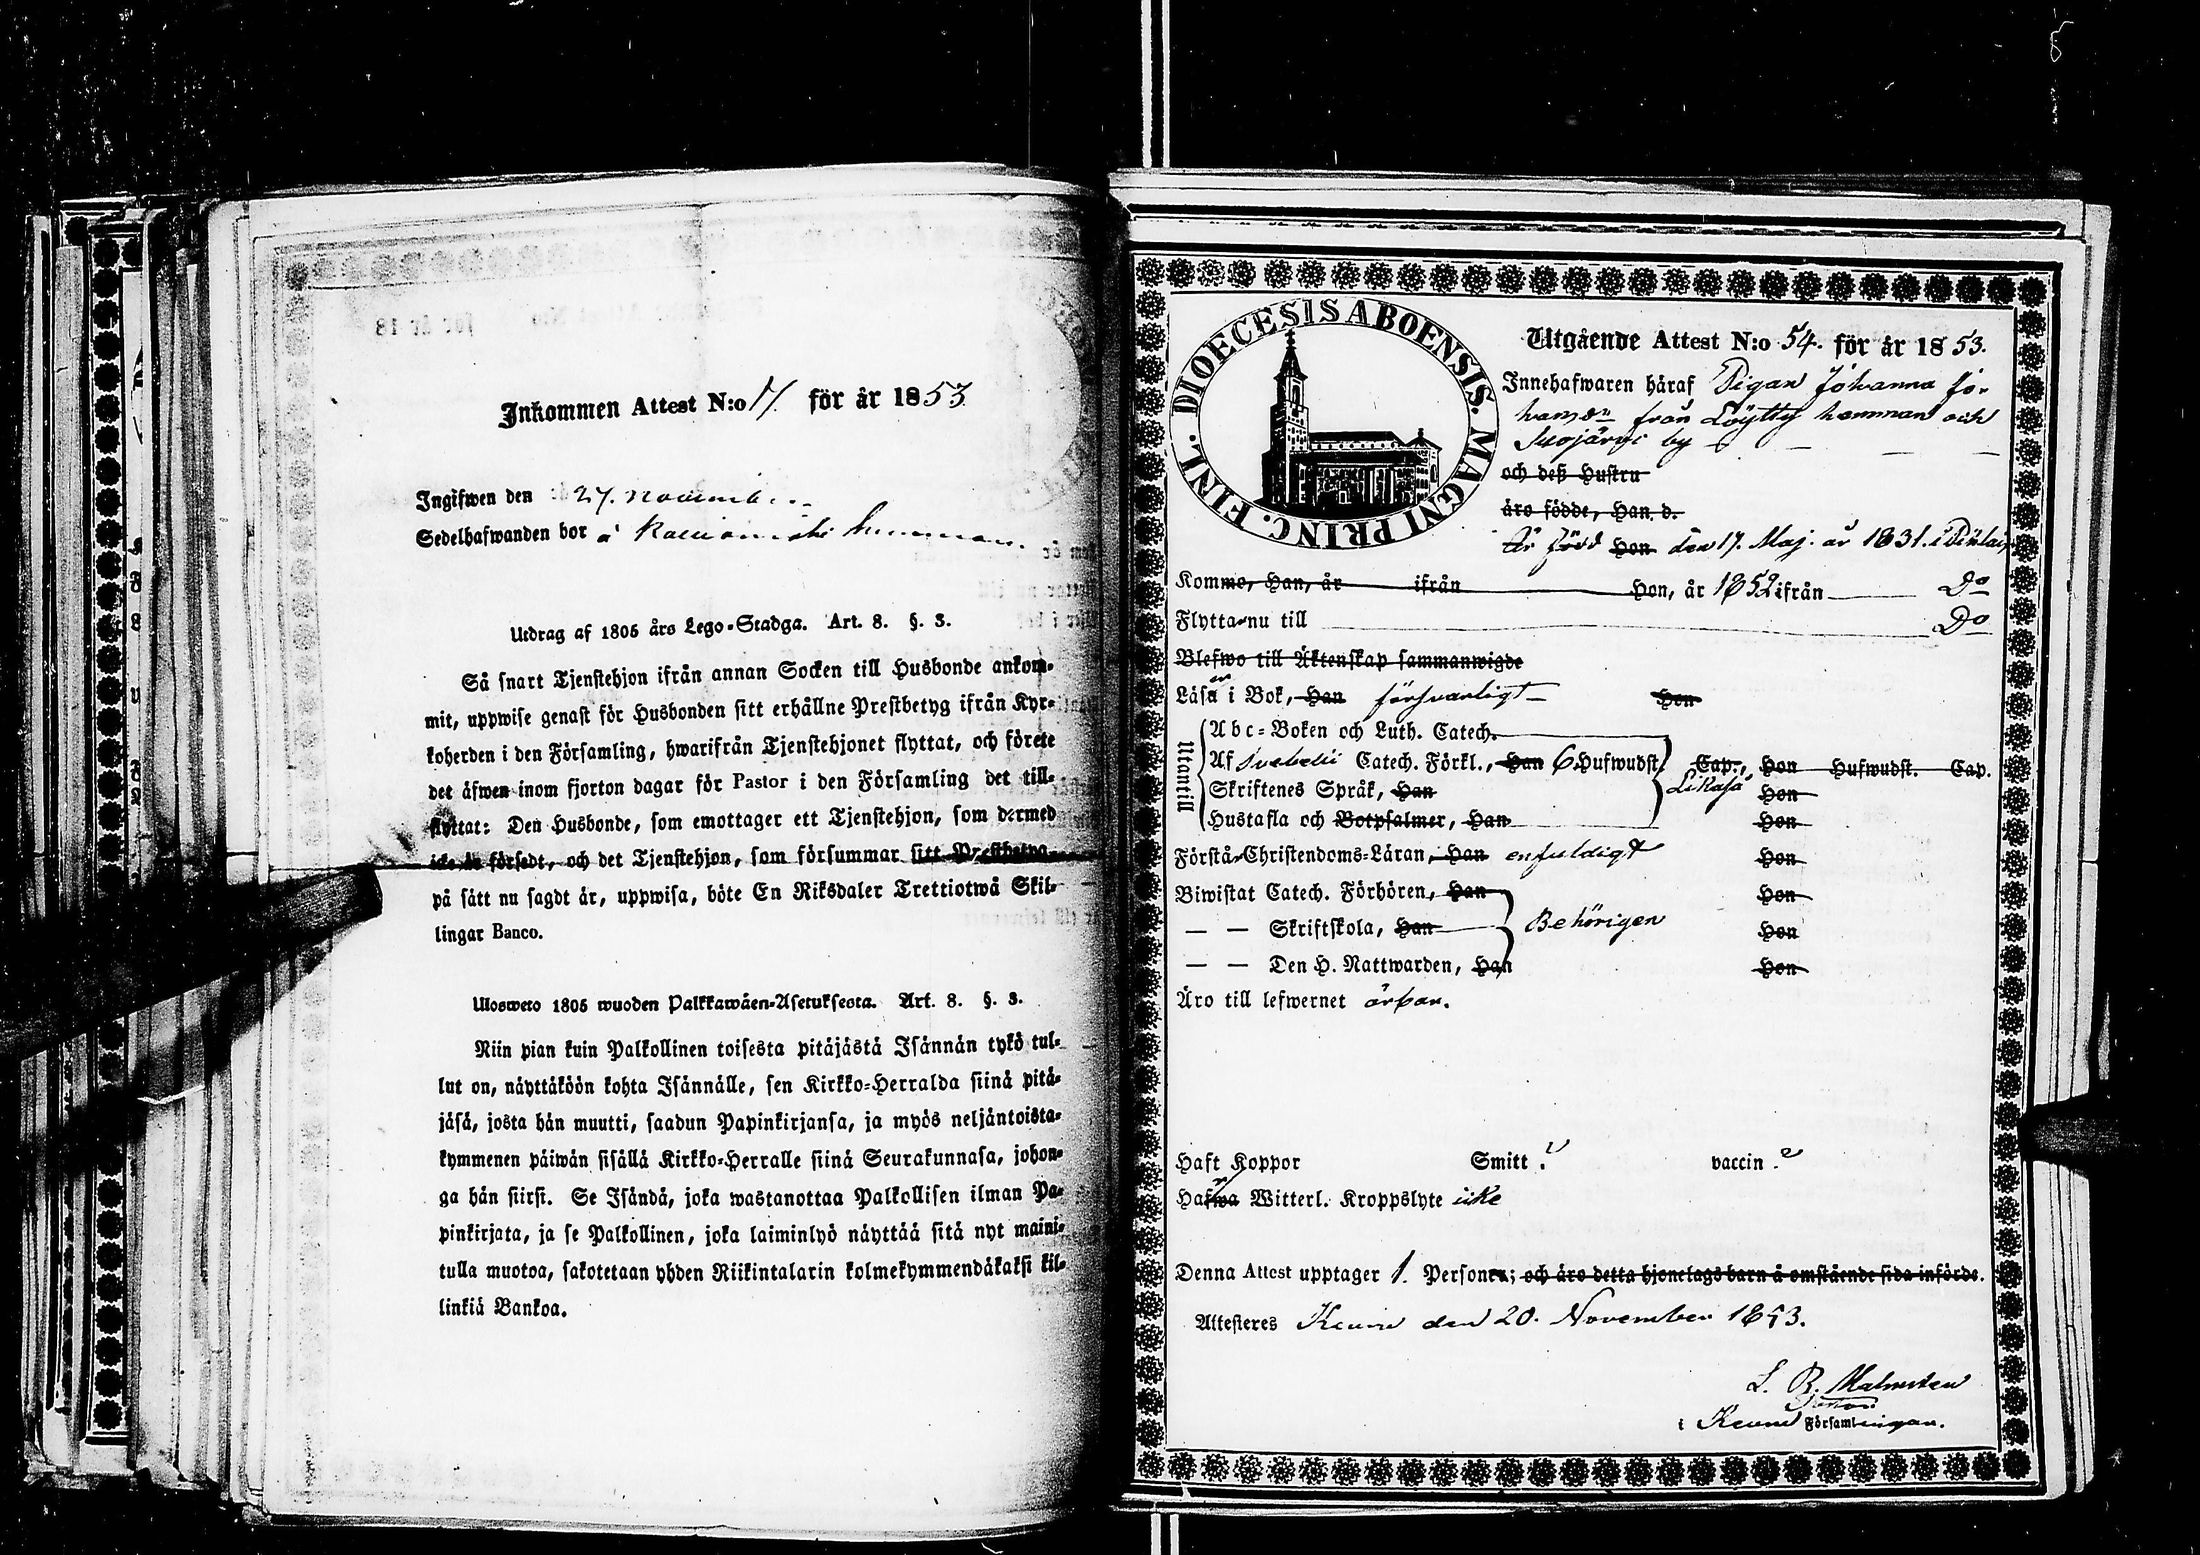 Inkommen Attest N:o 17. för år 1853.
Ingifwen den 27. November
Sedelhafwanden bor å
Utdrag af 1805 års Lego-Stadga. Art. 8. §. 3.
Så snart Tjenstehjon ifrån annan Socken till Husbonde ankom-
mit, uppwise genast för Husbonden sitt erhållne Prestbetyg ifrån Kyr-
koherden i den Församling, hwarifrån Tjenstehjonet flyttat, och förete
det äfwen inom fjorton dagar för Pastor i den Församling det till-
flyttat: Den Husbonde, som emottager ett Tjenstehjon, som dermed
icke är försedt, och det Tjenstehjon, som försummar sitt Prestbetyg
på sätt nu sagdt är, uppwisa, böte En Riksdaler Trettiotwå Skil-
lingar Banco.
Ulosweto 1805 wuoden Palkkawäen-Asetuksesta. Art. 8. §. 3.
Niin pian kuin Palkollinen toisesta pitäjästä Isännän tykö tul-
lut on, näyttäköön kohta Isännälle, sen Kirkko-Herralda siinä pitä-
jäsä, josta hän muutti, saadun Papinkirjansa, ja myös neljäntoista-
kymmenen päiwän sisällä Kirkko-Herralle siinä Seurakunnasa, johon-
ga hän siirsi. Se Isändä, joka wastanottaa Palkollisen ilman Pa-
pinkirjata, ja se Palkollinen, joka laiminlyö näyttää sitä nyt maini-
tulla muotoa, sakotetaan yhden Riikintalarin kolmekymmendäkaksi kil-
linkiä Bankoa.
DIOECESIS ABOENSIS. MAGNI PRINC. FINL.
Utgående Attest N:o 54. för år 1853.
Innehafwaren häraf Pigan Johanna Jo-
hansdr från Löytty hemman och
Suojärvi by
och deß Hustru
äro födde, Han, d.
Är född Hon den 17. Maj. år 1831. i
Komme, Han, år ifrån Hon, år 1852 ifrån Do
Flytta nu till Do
Blefwo till Äktenskap sammanwigde
Läsa i Bok, Han försvarligt Hon
Utantill
Abc-Boken och Luth. Catech.
Af Svebelii Catech. Förkl., Han 6 Hufwudst. Cap., Hon Hufwudst. Cap.
Skriftenes Språk, Han Likaså Hon
Hustafla och Botpsalmer, Han Hon
Förstå Christendoms-Läran, Han enfuldigt Hon
Biwistat Catech. Förhören, Han Hon
— — Skriftskola, Han Behörigen Hon
— — Den H. Nattwarden, Han Hon
Äro till lefwernet ärbar.
Haft Koppor Smitt. vaccin.
Hafwa Witterl. Kroppslyte icke
Denna Attest upptager 1. Personer; och äro detta hjonelags barn å omstående sida införde.
Attesteres Keuru den 20. November 1853.
L. B. Malmsten
i Keuru Församlingar.